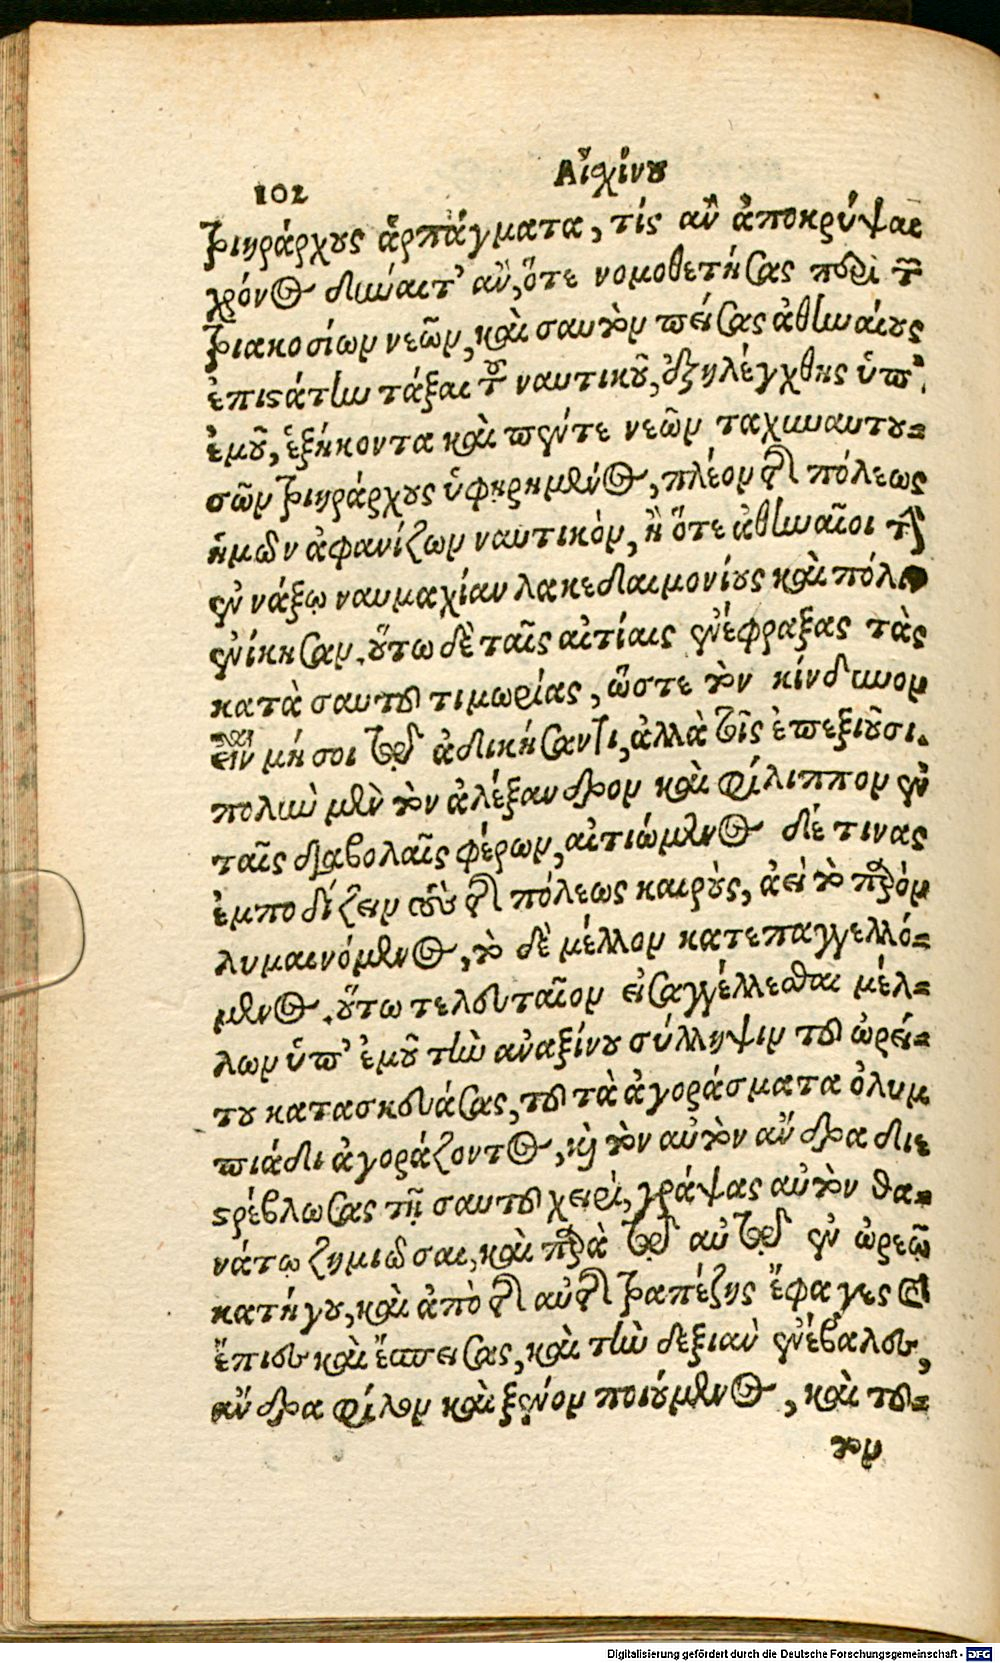 102
Αἰχίνου
τριηράρχους ἁρπάγματα, τίς ἂν ἀποκρύψαι
χρόνος δύναιτ' ἂν, ὅτε νομοθετήσας περὶ τῶν
τριακοσίων νεῶν, καὶ σαυτὸν πείσας ἀθηναίους
ἐπιστάτην τάξαι τοῦ ναυτικοῦ, ἐξηλέγχθης ὑπ'
ἐμοῦ, ἑξήκοντα καὶ πέντε νεῶν ταχυναυτου=
σῶν τριηράρχους ὑφῃρημένος, πλέον τῆς πόλεως
ἡμῶν ἀφανίζων ναυτικὸν, ἢ ὅτε ἀθηναῖοι τὴν
ἐν νάξῳ ναυμαχίαν λακεδαιμονίους καὶ πόλιν
ἐνίκησαν. οὕτω δὲ ταῖς αἰτίαις ἐνέφραξας τὰς
κατὰ σαυτοῦ τιμωρίας, ὥστε τὸν κίνδυνον
εἶναι μή σοι τῷ ἀδικήσαντι, ἀλλὰ τοῖς ἐπεξιοῦσι.
πολὺν μὲν τὸν ἀλέξανδρον καὶ φίλιππον ἐν
ταῖς διαβολαῖς φέρων, αἰτιώμενος δέ τινας
ἐμποδίζειν τοὺς τῆς πόλεως καιρὸυς, ἀεὶ τὸ παρὸν
λυμαινόμενος, τὸ δὲ μέλλον κατεπαγγελλό=
μενος. οὕτω τελευταῖον εἰσαγγέλλεσθαι μέλ=
λων ὑπ' ἐμοῦ τὴν αναξίνου σύλληψιν τοῦ ὠρεί=
του κατασκευάσας, τοῦ τὰ ἀγοράσματα ὀλυμ
πιάδι ἀγοράζοντος, καὶ τὸν αὐτὸν ἄνδρα διε
στρέβλωσας τῇ σαυτοῦ χειρὶ, γράψας αὐτὸν θα=
νάτῳ ζημιῶσαι, καὶ παρὰ τῷ αὐτῷ ἐν ὠρεῷ
κατήγου, καὶ ἀπὸ τῆς αὐτῆς τραπέζης ἔφαγες καὶ
ἔπιες καὶ ἔσπεισας, καὶ τὴν δεξιὰν ἐνέβαλες,
ἄνδρα φίλον καὶ ξένον ποιούμενος, καὶ τοῦ=
τον
Digitalisierung gefördert durch die Deutsche Forschungsgemeinschaft - DFG